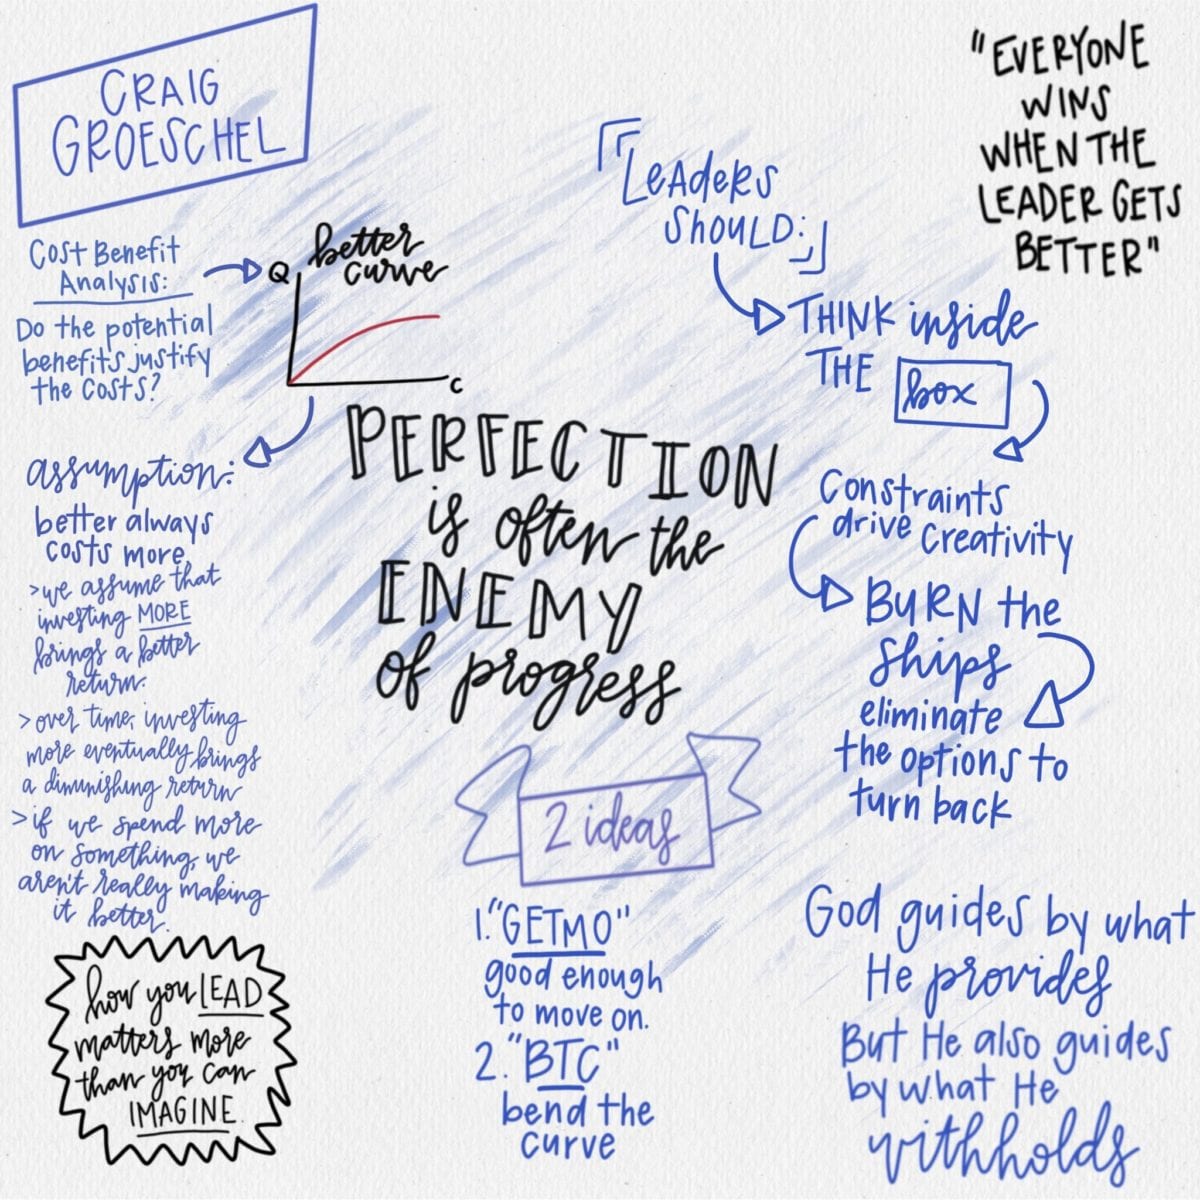 CRAIG
GROESCHEL
"EVERYONE
WINS
WHEN THE
LEADER GETS
BETTER"
Cost Benefit
Analysis:
Do the potential
benefits justify
the costs?
better
curve
Q
C
assumption:
better always
costs more
>we assume that
investing MORE
brings a better
return.
>over time, investing
more eventually brings
a diminishing return
>if we spend more
on something, we
aren't really making
it better.
how you LEAD
matters more
than you can
IMAGINE.
PERFECTION
is often the
ENEMY
of progress
2 ideas
1."GETMO"
good enough
to move on.
2."BTC"
bend the
curve
Leaders
Should:
THINK inside
THE box
Constraints
drive creativity
BURN the
ships
eliminate
the options to
turn back
God guides by what
He provides
But He also guides
by what He
withholds